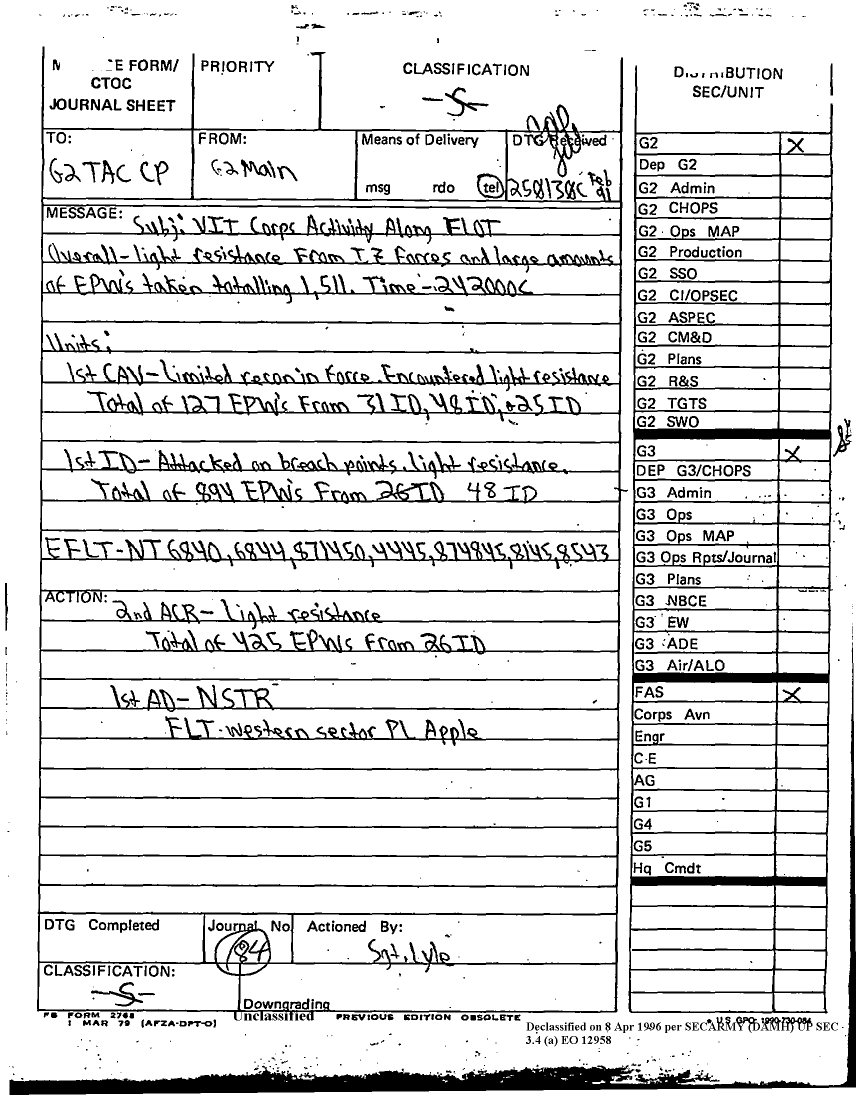 E FORM/
CTOC
JOURNAL SHEET
PRIORITY
CLASSIFICATION
-S-
DISTRIBUTION
SEC/UNIT
TO:
G2 TAC CP
FROM:
G2 Main
Means of Delivery
msg rdo tel
DTG Received
250130C Feb 91
MESSAGE: Subj: VII Corps Activity Along FLOT
Overall-light resistance From IZ Forces and large amounts
of EPW's taken totalling 1,511. Time-242000C
Units:
1st CAV-limited recon in Force. Encountered light resistance
Total of 127 EPW's From 31 ID, 48 ID, + 25 ID
1st ID-Attacked on breach points. light resistance.
Total of 894 EPW's From 26 ID 48 ID
EFLT-NT 6840, 6844, 871450, 4445, 874845, 8145, 8543
ACTION: 2nd ACR-Light resistance
Total of 425 EPWs From 26 ID
1st AD-NSTR
FLT-western sector PL Apple
DTG Completed
Journal No
84
Actioned By:
Sgt. Lyle
CLASSIFICATION:
-S-
Downgrading
Unclassified
FB FORM 2768
1 MAR 79 (AFZA-DPT-O)
PREVIOUS EDITION OBSOLETE
G2 X
Dep G2
G2 Admin
G2 CHOPS
G2 Ops MAP
G2 Production
G2 SSO
G2 CI/OPSEC
G2 ASPEC
G2 CM&D
G2 Plans
G2 R&S
G2 TGTS
G2 SWO
G3 X
DEP G3/CHOPS
G3 Admin
G3 Ops
G3 Ops MAP
G3 Ops Rpts/Journal
G3 Plans
G3 NBCE
G3 EW
G3 ADE
G3 Air/ALO
FAS X
Corps Avn
Engr
C-E
AG
G1
G4
G5
Hq Cmdt
U.S. GPO: 1990-730-084
Declassified on 8 Apr 1996 per SECARMY (DAMH) UP SEC
3.4 (a) EO 12958